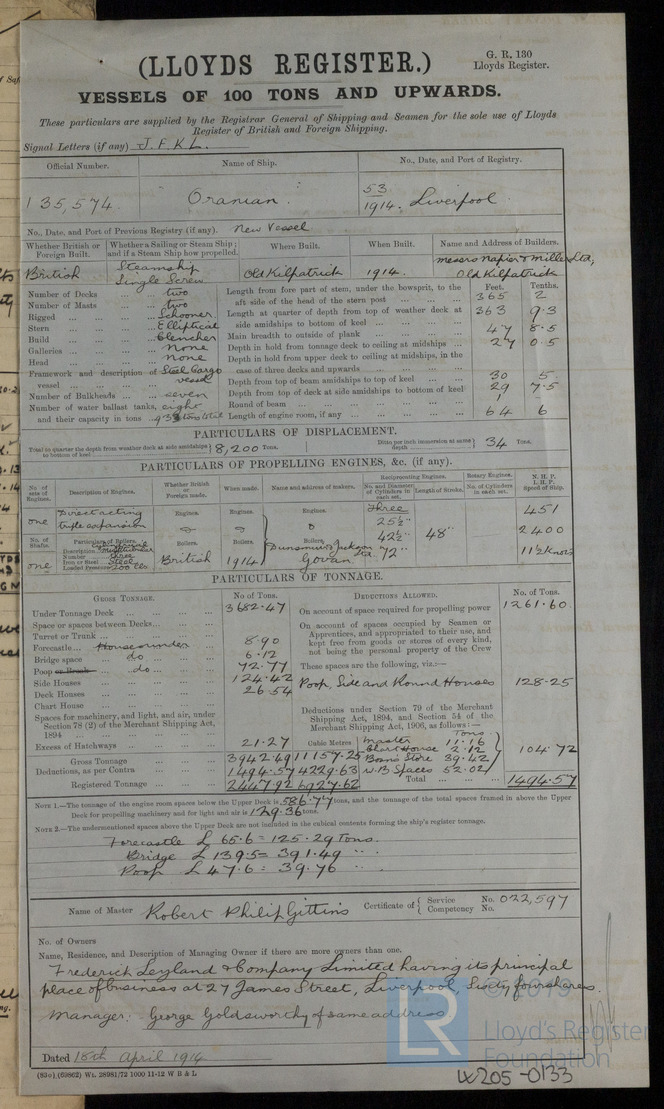 G. R. 130
(LLOYDS REGISTER.)
Lloyds Register.
VESSELS OF 100 TONS AND UPWARDS.
These particulars are supplied by the Registrar General of Shipping and Seamen for the sole use of Lloyds
Register of British and Foreign Shipping.
Signal Letters (if any) J. F. K L.
Official Number. Name of Ship. No., Date, and Port of Registry.
135,574 Oranian. 53/1914. Liverpool
No., Date, and Port of Previous Registry (if any). New Vessel
Whether British or Foreign Built. Whether a Sailing or Steam Ship; and if a Steam Ship how propelled. Where Built. When Built. Name and Address of Builders.
British Steamship Single Screw Old Kilpatrick 1914. Messrs Napier & Miller Ltd, Old Kilpatrick
Feet. Tenths.
Number of Decks two
Number of Masts two
Rigged Schooner
Stern Elliptical
Build Clencher
Galleries none
Head none
Framework and description of vessel Steel Cargo vessel
Number of Bulkheads seven
Number of water ballast tanks, eight
and their capacity in tons 933 tons total
Length from fore part of stem, under the bowsprit, to the aft side of the head of the stern post 365 2
Length at quarter of depth from top of weather deck at side amidships to bottom of keel 363 9.3
Main breadth to outside of plank 47 8.5
Depth in hold from tonnage deck to ceiling at midships 27 0.5
Depth in hold from upper deck to ceiling at midships, in the case of three decks and upwards
Depth from top of beam amidships to top of keel 30 5
Depth from top of deck at side amidships to bottom of keel 29 7.5
Round of beam 1
Length of engine room, if any 64 6
PARTICULARS OF DISPLACEMENT.
Total to quarter the depth from weather deck at side amidships to bottom of keel 8,200 Tons. Ditto per inch immersion at same depth 34 Tons.
PARTICULARS OF PROPELLING ENGINES, &c. (if any).
No. of sets of Engines. Description of Engines. Whether British or Foreign made. When made. Name and address of makers. Reciprocating Engines. Rotary Engines. N. H. P. I. H. P. Speed of Ship.
No. and Diameter of Cylinders in each set. Length of Stroke. No. of Cylinders in each set.
one Direct acting triple expansion Engines. Engines. Engines. Three 25½" 42½" 72" 48" 451
No. of Shafts. Particulars of Boilers. Boilers. Boilers. Boilers. 2400
Description Cylindrical Multitubular
Number three
Iron or Steel Steel
Loaded Pressure 200 lbs
one British 1914 Dunsmuir & Jackson Ltd. Govan 11½ knots
PARTICULARS OF TONNAGE.
GROSS TONNAGE. No. of Tons. DEDUCTIONS ALLOWED. No. of Tons.
Under Tonnage Deck 3682.47
Space or spaces between Decks
Turret or Trunk
Forecastle House under 8.90
Bridge space do 6.12
Poop or Break do 72.77
Side Houses 124.42
Deck Houses 26.54
Chart House
Spaces for machinery, and light, and air, under Section 78 (2) of the Merchant Shipping Act, 1894
Excess of Hatchways 21.27
Cubic Metres
Gross Tonnage 3942.49 11157.25
Deductions, as per Contra 1494.57 4229.63
Registered Tonnage 2447.92 6927.62
On account of space required for propelling power 1261.60
On account of spaces occupied by Seamen or Apprentices, and appropriated to their use, and kept free from goods or stores of every kind, not being the personal property of the Crew
These spaces are the following, viz.:—
Poop, Side and Round Houses 128.25
Deductions under Section 79 of the Merchant Shipping Act, 1894, and Section 54 of the Merchant Shipping Act, 1906, as follows:—
Tons
Master 11.16
Chart House 2.12
Bosn's Store 39.42
W.B Spaces 52.02
104.72
Total 1494.57
NOTE 1.—The tonnage of the engine room spaces below the Upper Deck is 586.77 tons, and the tonnage of the total spaces framed in above the Upper
Deck for propelling machinery and for light and air is 129.36 tons.
NOTE 2.—The undermentioned spaces above the Upper Deck are not included in the cubical contents forming the ship's register tonnage.
Forecastle £ 65.6 = 125.29 Tons.
Bridge £ 139.5 = 391.49 " .
Poop £ 47.6 = 39.76 " .
Name of Master Robert Philip Gittins Certificate of { Service Competency No. No. 022,597
No. of Owners
Name, Residence, and Description of Managing Owner if there are more owners than one.
Frederick Leyland & Company Limited having its principal
place of business at 27 James Street, Liverpool, Sixty four shares.
Manager: George Goldsworthy of same address
LR
© 2019
Lloyd's Register
Foundation
Dated 15th April 1914
(93o) (69862) Wt. 28981/72 1000 11-12 W B & L
LX205-0133